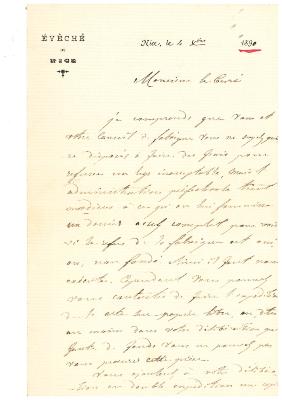 ÉVÊCHÉ
DE
NICE
Nice, le 4 Xbre 1890
Monsieur le Curé
je comprends que vous et
votre Conseil de fabrique vous ne soyez pas
disposés à faire des frais pour
refuser un legs inacceptable, mais l'
administration préfectorale tient
à ce qu'on lui fournisse
un dossier assez complet pour voir
si le refus de la fabrique est oui
ou, non fondé. Ainsi il faut nous
exécuter. Cependant vous pouvez
vous contenter de faire l'expédition
de l'acte sur papier libre, ou dire
au moins dans votre délibération que
faute de fonds vous ne pouvez pas
vous procurer cette pièce.
Vous ajoutez à votre délibéra-
tion en double expédition une copie